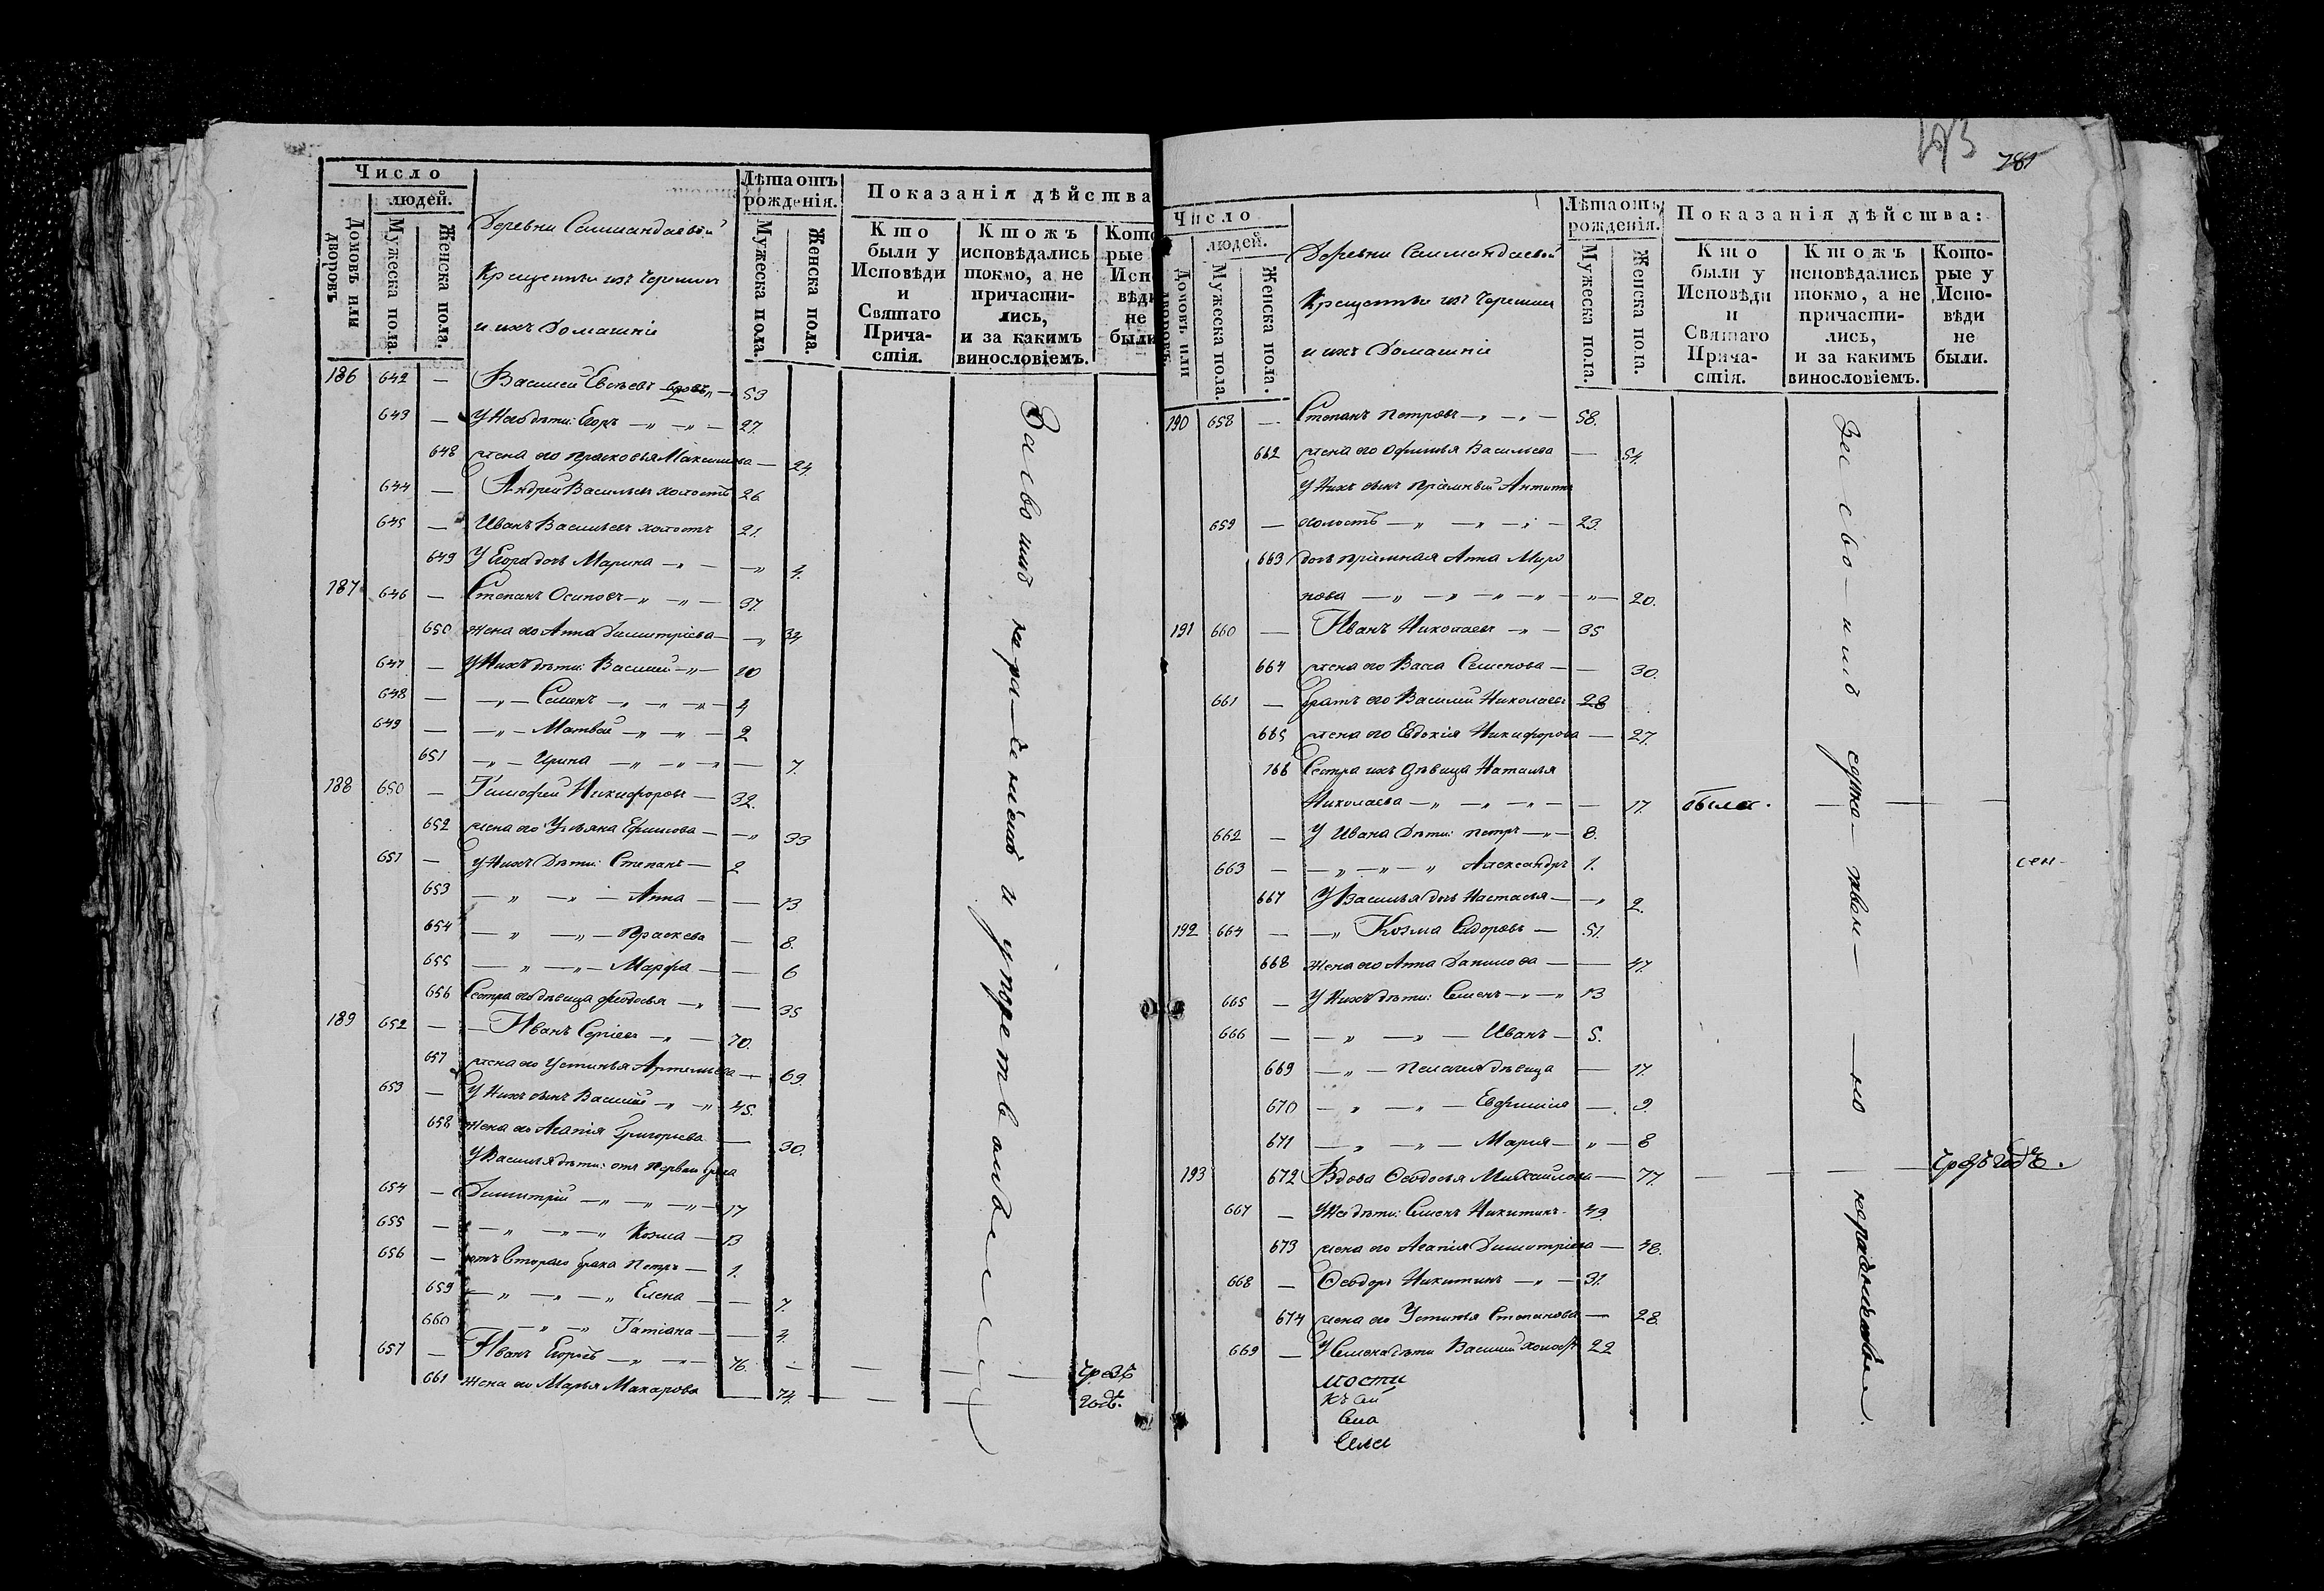 Число
людей.
Домовъ или дворовъ
Мужеска пола.
Женска пола.
Деревни
Крещенные изъ Черемис
и ихъ домашніе
Лѣта отъ рожденія.
Мужеска пола.
Женска пола.
Показанія дѣйства
Кто были у Исповѣди и Святаго Прича-стія.
Ктожъ исповѣдались токмо, а не причасти-лись, и за какимъ винословіемъ.
186 642 — Василей 53
643 — У Него дѣти: Егоръ —„ —„ — 27.
648 жена его Прасковья Максимова — 24
644 — Андрей Васильевъ холостъ 26
645 — Иванъ Васильевъ холостъ 21.
649 У Егора дочь Марина —„ — —„ 4.
187 646 — Степанъ Осиповъ —„ —„ — 37.
650 жена его Анна Димитріева — —„ 34
647 — У Нихъ дѣти: Василій —„— 10
648 — —„— Семенъ —„ —„ —„— 4
649 — —„— Матвей —„ —„ — 2
651 —„— Ирина —„ —„ —„ — 7.
188 650 — Тимофей Никифоровъ — 32.
652 жена его Ульяна Ефимова — —„ 33
651 — У Нихъ Дѣти: Степанъ — 2
653 —„ —„ — Анна — — 13
654 —„ —„ — Праскева — 8.
655 —„ —„ — Марфа — — 6
656 Сестра его дѣвица Феодосья —„ — 35
189 652 — — Иванъ Сергіевъ —„ — 70.
657 жена его Устинья Артемьева — 69.
653 — У Нихъ сынъ Василій —„ —„ 45.
658 жена его Агапія Григорьева — 30.
У Василья дѣти: отъ Перваго брака
654 — Димитрій —„ —„ —„— 17
655 — —„ —„—„ Козма — 13
656 — отъ Втораго брака Петръ — 1.
659 —„ —„ —„ Елена — — 7.
660 —„ —„ Татіана — — 4.
657 — Иванъ Егоровъ —„ —„— 76. — — — чрезъ
661 жена его Марья Макарова — 74. — — — годъ.
За своими и упорствомъ
781
Число
людей.
Домовъ или дворовъ
Мужеска пола
Женска пола.
Деревни
Крещенные изъ Черемис
и ихъ домашніе
Лѣта отъ рожденія.
Мужеска пола.
Женска пола.
Показанія дѣйства:
Кто были у Исповѣди и Святаго Прича-стія.
Ктожъ исповѣдались токмо, а не причасти-лись, и за какимъ винословіемъ.
Кото-рые у Испо-вѣди не были.
190 658 — Степанъ Петровъ —„ —„ — 58.
662 жена его Офимья Васильева — 54.
У Нихъ сынъ пріемный
659 — холостъ —„ —„ —„ — 23.
663 дочь пріемная Анна Миро
нова —„ —„ —„ —„ —„— 20.
191 660 — Иванъ Николаевъ —„ — 35
664 жена его Васса Семенова — — 30.
661 — братъ его Василій Николаевъ 28
665 жена его Евдокія Никифорова — 27.
166 Сестра ихъ дѣвица Наталья
Николаева —„ —„ —„ — — 17. была. — — —
662 — У Ивана Дѣти: Петръ —„— 8.
663 — —„—„—„ Александръ 1.
сен-
667 У Василья дочь Настасья — —„ 2.
192 664 — —„ Козма Сидоровъ — 51.
668 жена его Анна Данилова — — 47.
665 — У Нихъ дѣти: Семенъ —„—„ 13
666 — —„ —„ — Иванъ — 5.
669 —„— Пелагія дѣвица — 17.
670 —„ —„ — Евфимія — 9.
671 —„ —„ — Марія — „— 8
193 672 Вдова Феодосья Михайлова — 77. — — — чрезъ годъ.
667 — У Ней дѣти: Семенъ Никитинъ — 49.
673 жена его Агапія Димитріева — 48.
668 — Феодоръ Никитинъ —„ — 31.
674 жена его Устинья Степанова — 28.
669 — У Семена дѣти Василій холостъ 22
мости
За сво-ими